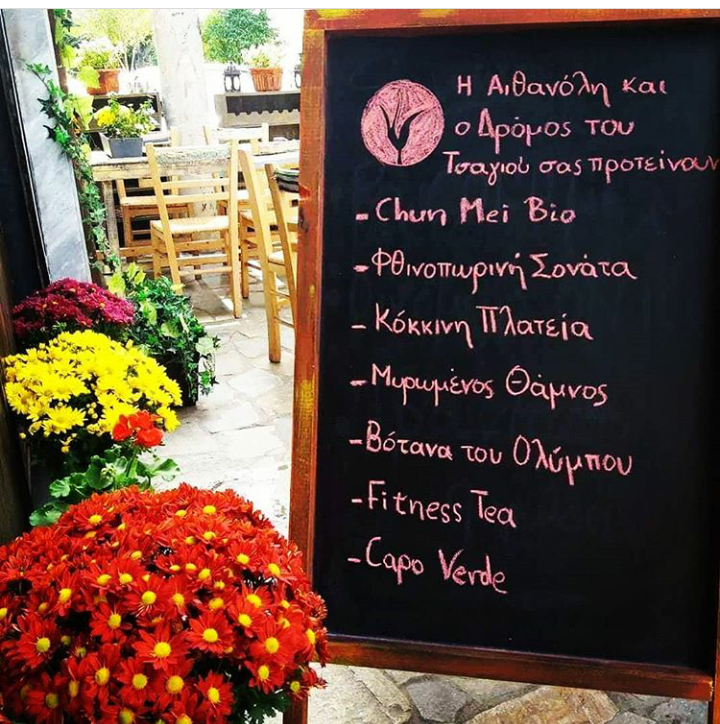 Η Αιθανόλη και
ο Δρόμος του
Τσαγιού σας προτείνουν
- Chun Mei Bio
- Φθινοπωρινή Σονάτα
- Κόκκινη Πλατεία
- Μυρωμένος Θάμνος
- Βότανα του Ολύμπου
- Fitness Tea
- Capo Verde